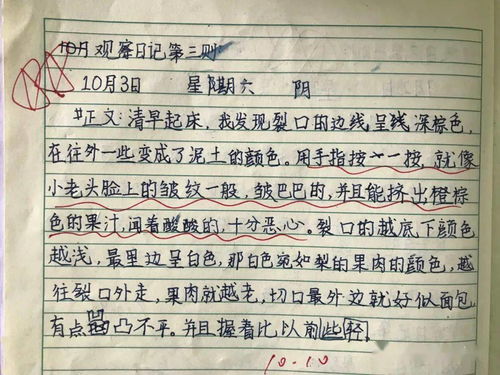 10月观察日记第三则
10月3日 星期六 阴
#正文:清早起床,我发现裂口的边线呈线深棕色,
在往外一些变成了泥土的颜色。用手指按一按,就像
小老头脸上的皱纹一般,皱巴巴的,并且能挤出橙棕
色的果汁,闻着酸酸的,十分恶心。裂口的越底下颜色
越浅,最里边呈白色,那白色宛如梨的果肉的颜色,越
往裂口外走,果肉就越老,切口最外边就好似面包,
有点凹凸不平。并且握着比以前些轻。
10.10